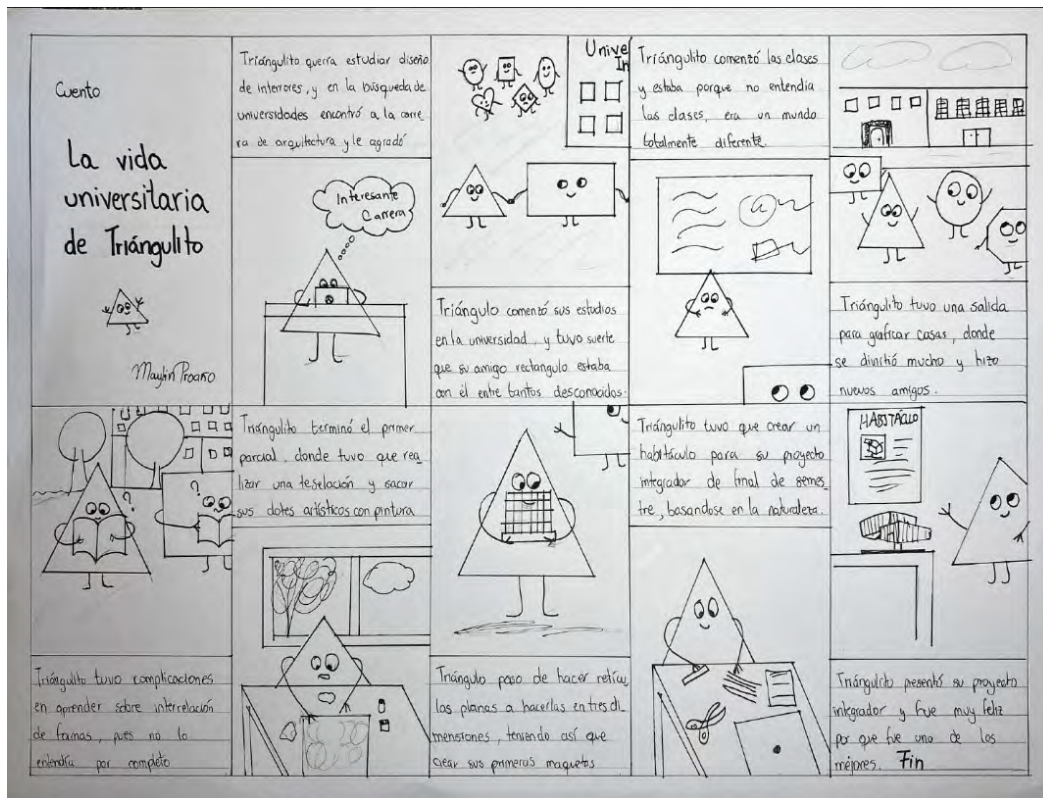 Cuento
La vida
universitaria
de Triángulito
Triángulito quería estudiar diseño
de interiores, y en la búsqueda de
universidades encontró a la carre
ra de arquitectura y le agradó
Interesante
Carrera
Unive
In
Triángulo comenzó sus estudios
en la universidad, y tuvo suerte
que su amigo rectangulo estaba
con él entre tantos desconocidos.
Triángulito comenzó las clases
y estaba porque no entendia
las clases, era un mundo
totalmente diferente.
Triángulito tuvo una salida
para graficar casas, donde
se divirtió mucho y hizo
nuevos amigos.
? ?
Triángulito tuvo complicaciones
en aprender sobre interrelación
de formas, pues no lo
entendía por completo
Triángulito terminó el primer
parcial, donde tuvo que rea
lizar una teselación y sacar
sus dotes artísticos con pintura
Triángulo paso de hacer retícu
las planas a hacerlas en tres di
mensiones, teniendo así que
crear sus primeras maquetas
Triángulito tuvo que crear un
habitáculo para su proyecto
integrador de final de semes
tre, basandose en la naturaleza.
HABITÁCULO
Triángulito presentó su proyecto
integrador y fue muy feliz
por que fue uno de los
mejores. Fin